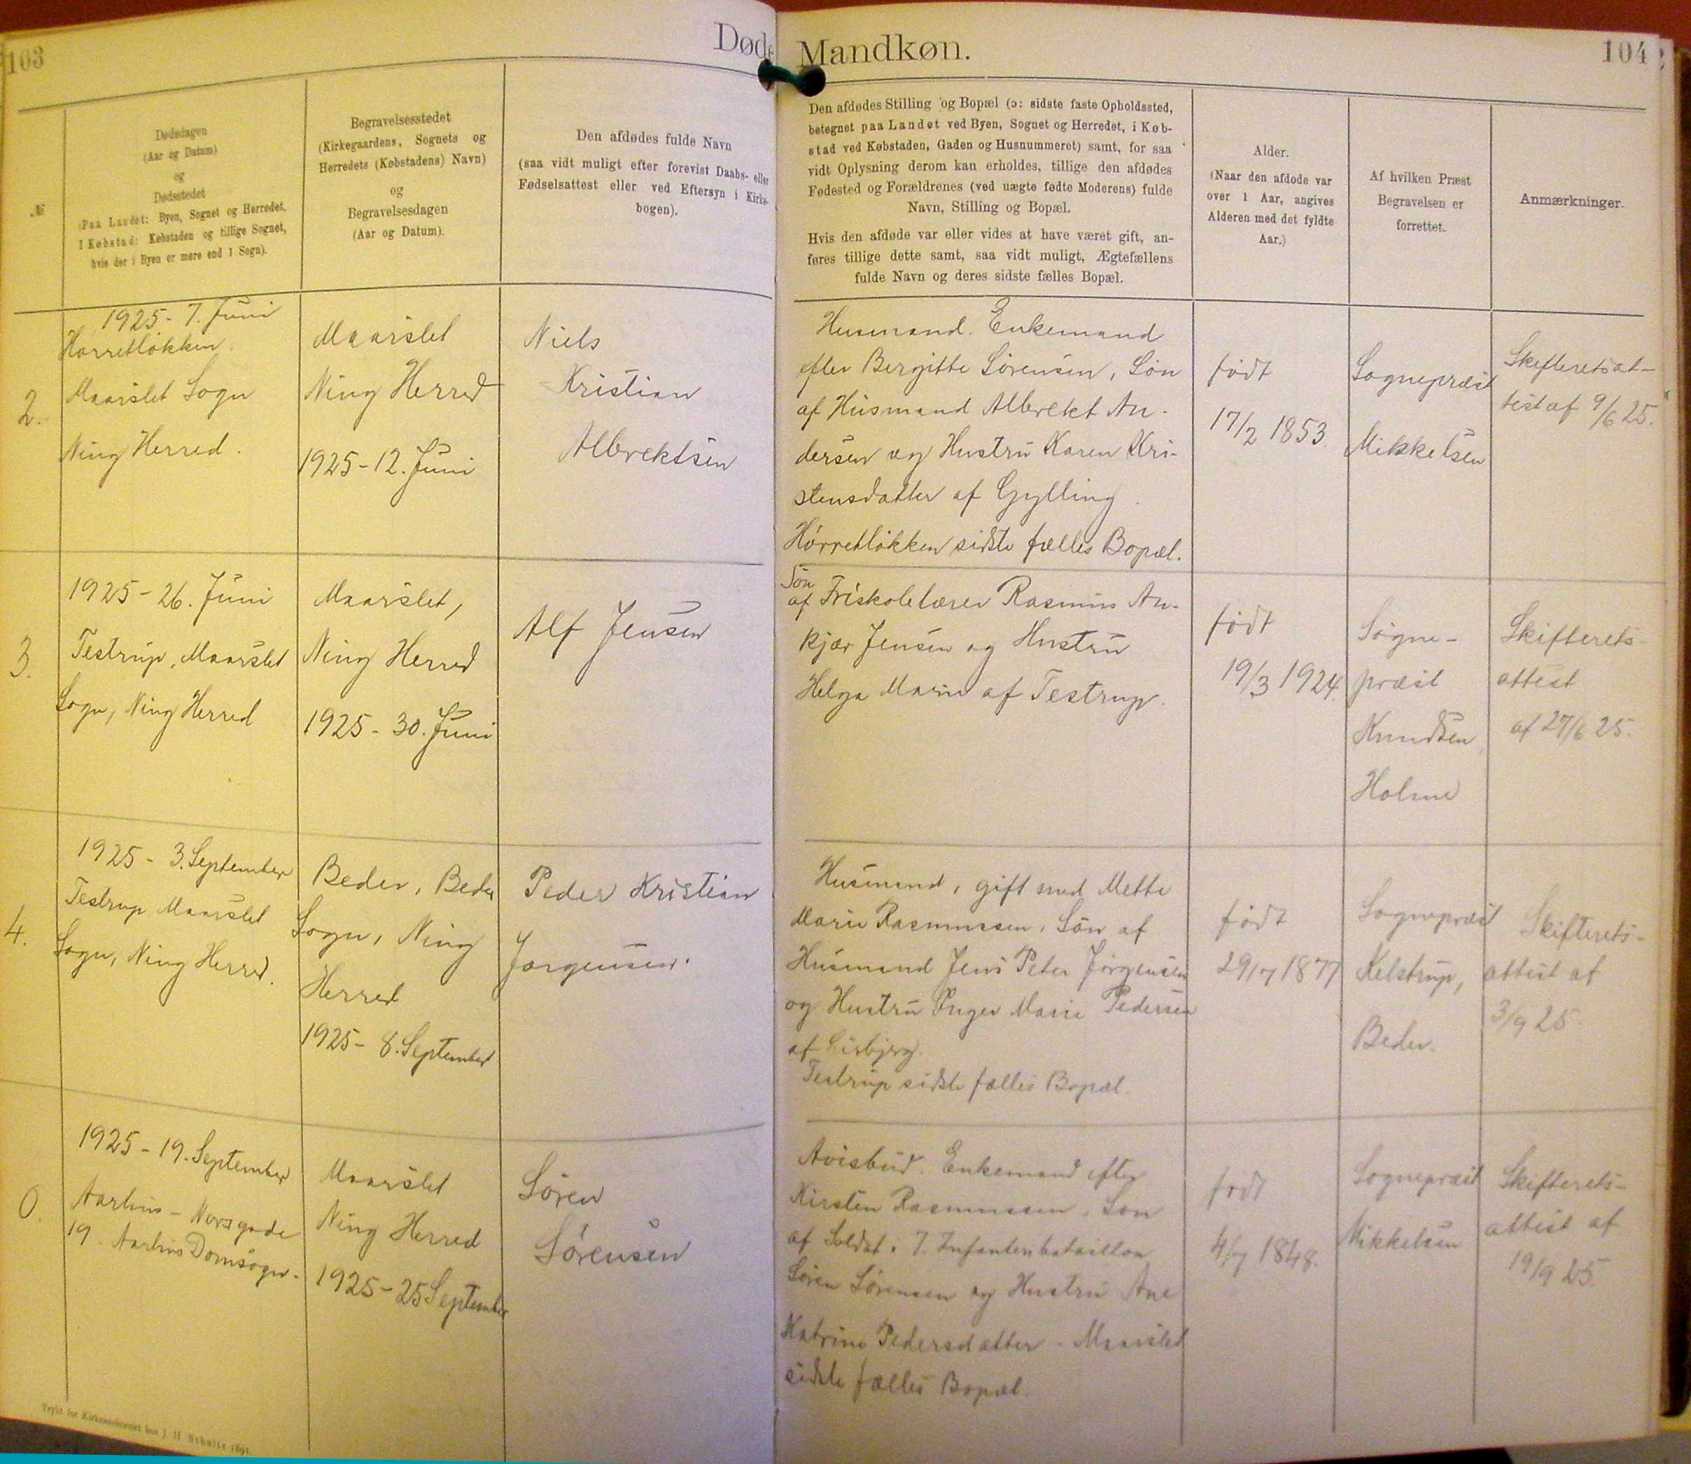 103
Døde
Mandkøn.
104
№
Dødsdagen
(Aar og Datum)
og
Dødsstedet
(Paa Landet: Byen, Sognet og Herredet,
I Købstad: Købstaden og tillige Sognet,
hvis der i Byen er mere end 1 Sogn).
Begravelsesstedet
(Kirkegaardens, Sognets og
Herredets (Købstadens) Navn)
og
Begravelsesdagen
(Aar og Datum).
Den afdødes fulde Navn
(saa vidt muligt efter forevist Daabs- eller
Fødselsattest eller ved Eftersyn i Kirke-
bogen).
Den afdødes Stilling og Bopæl (ɔ: sidste faste Opholdssted,
betegnet paa Landet ved Byen, Sognet og Herredet, i Køb-
stad ved Købstaden, Gaden og Husnummeret) samt, for saa
vidt Oplysning derom kan erholdes, tillige den afdødes
Fødested og Forældrenes (ved uægte fødte Moderens) fulde
Navn, Stilling og Bopæl.
Hvis den afdøde var eller vides at have været gift, an-
føres tillige dette samt, saa vidt muligt, Ægtefællens
fulde Navn og deres sidste fælles Bopæl.
Alder.
(Naar den afdøde var
over 1 Aar, angives
Alderen med det fyldte
Aar.)
Af hvilken Præst
Begravelsen er
forrettet.
Anmærkninger.
2.
1925 - 7. Juni
Hørretløkken.
Maarslet Sogn
Ning Herred.
Maarslet
Ning Herred
1925 - 12. Juni
Niels
Kristian
Albrektsen
Husmand. Enkemand
efter Bergitte Sørensen, Søn
af Husmand Albrekt An-
dersen og Hustru Karen Kri-
stensdatter af Gylling.
Hørretløkken sidste fælles Bopæl.
født
17/2 1853.
Sognepræst
Mikkelsen
Skifteretsat-
test af 9/6 25.
3.
1925 - 26. Juni
Testrup, Maarslet
Sogn, Ning Herred
Maarslet,
Ning Herred
1925 - 30. Juni
Alf Jensen
Søn
af Friskolelærer Rasmus An-
kjær Jensen og Hustru
Helga Marie af Testrup.
født
19/3 1924.
Sogne-
præst
Knudsen
Holme
Skifterets-
attest
af 27/6 25.
4.
1925 - 3. September
Testrup Maarslet
Sogn, Ning Herred.
Beder, Beder
Sogn, Ning
Herred
1925 - 8. September
Peder Kristian
Jørgensen.
Husmand, gift med Mette
Marie Rasmussen, Søn af
Husmand Jens Peter Jørgensen
og Hustru Inger Marie Pedersen
af Lisbjerg.
Testrup sidste fælles Bopæl.
født
29/7 1877
Sognepræst
Kelstrup,
Beder.
Skifterets-
attest af
3/9 25
0.
1925 - 19. September
Aarhus - Norsgade
19. Aarhus Domsogn.
Maarslet
Ning Herred
1925 - 25 September
Søren
Sørensen
Avisbud. Enkemand efter
Kirsten Rasmussen. Søn
af Soldat i 7. Infanteribataillon
Søren Sørensen og Hustru Ane
Katrine Pedersdatter - Maarslet
sidste fælles Bopæl.
født
4/7 1848.
Sognepræst
Mikkelsen
Skifterets-
attest af
19/9 25.
Trykt for Kirkeministeriet hos J. H. Schultz 1891.